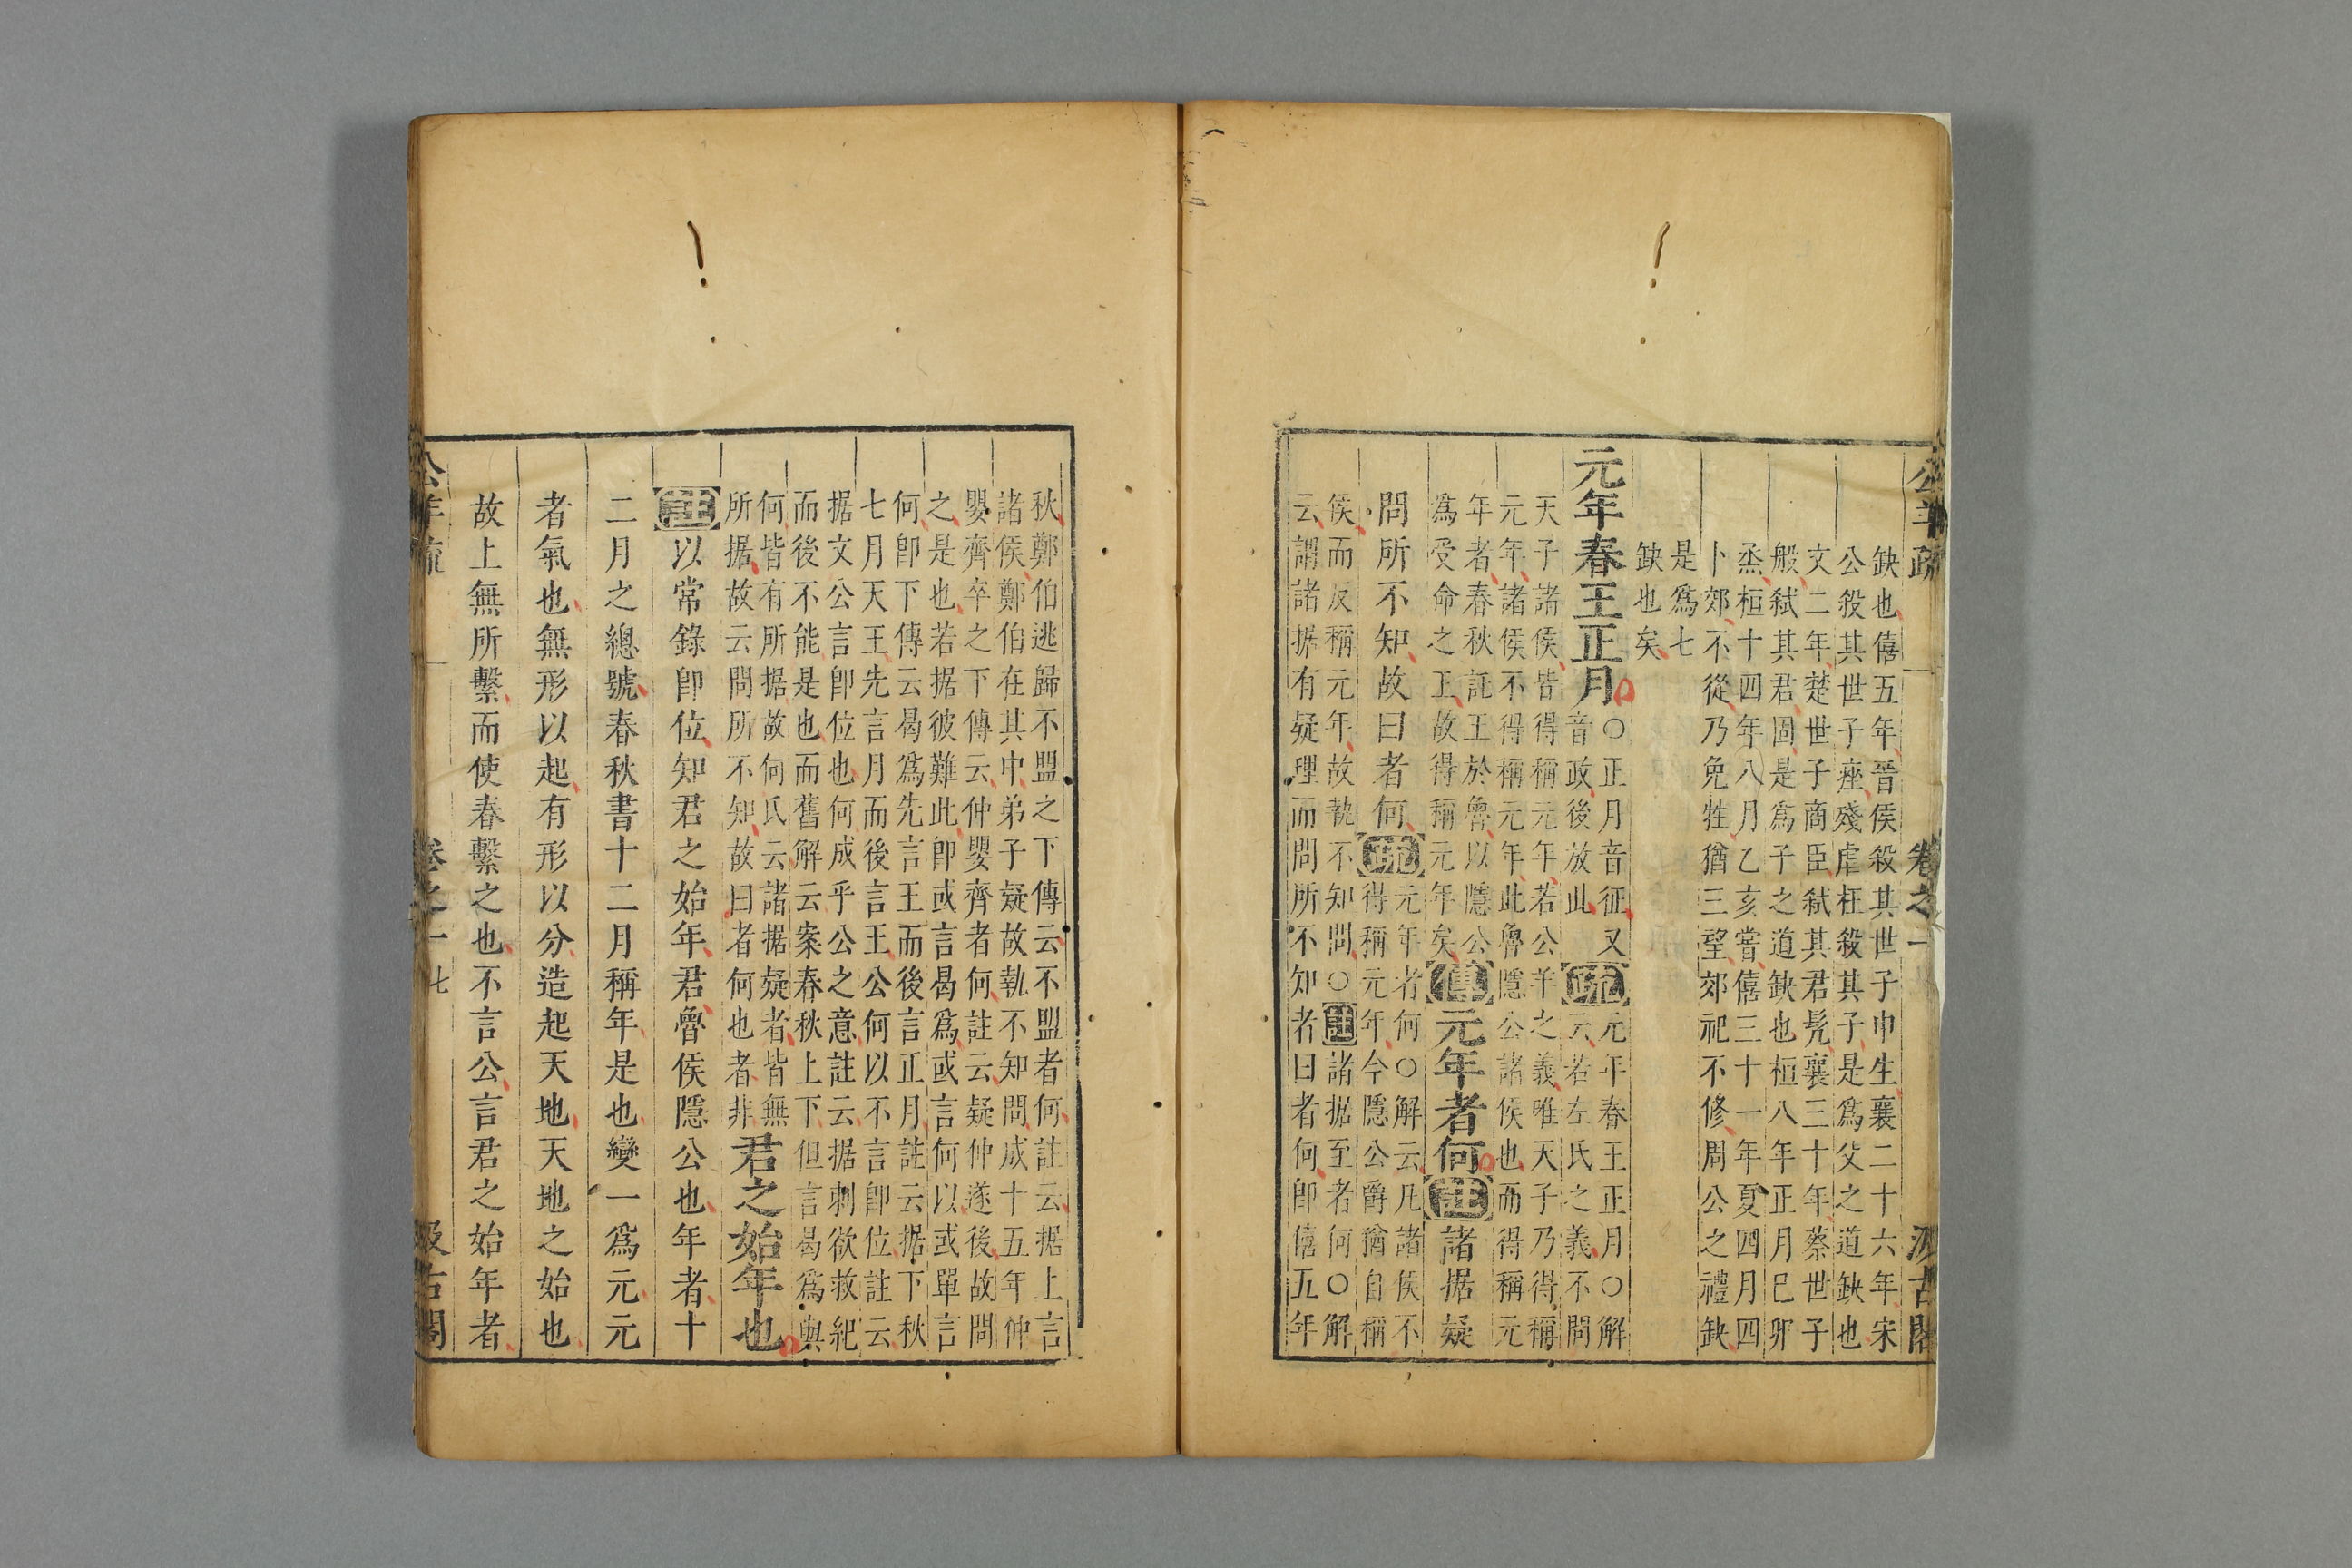 公羊疏 卷之一 汲古閣
缺也僖五年晉侯殺其世子申生襄二十六年宋
公殺其世子痤殘虐枉殺其子是爲父之道缺也
文二年楚世子商臣弑其君髡襄三十年蔡世子
般弑其君固是爲子之道缺也桓八年正月己卯
烝桓十四年八月乙亥嘗僖三十一年夏四月四
卜郊不從乃免牲猶三望郊祀不修周公之禮缺
是爲七
缺也矣
元年春王正月
○正月音征又
音政後放此
疏
元年春王正月○解
云若左氏之義不問
天子諸侯皆得稱元年若公羊之義唯天子乃得稱
元年諸侯不得稱元年此魯隱公諸侯也而得稱元
年者春秋託王於魯以隱公
爲受命之王故得稱元年矣
傳元年者何註諸据疑
問所不知故曰者何疏
元年者何○解云凡諸侯不
得稱元年今隱公爵猶自稱
侯而反稱元年故執不知問○註諸据至者何○解
云謂諸据有疑理而問所不知者曰者何卽僖五年
秋鄭伯逃歸不盟之下傳云不盟者何註云据上言
諸侯鄭伯在其中弟子疑故執不知問成十五年仲
嬰齊卒之下傳云仲嬰齊者何註云疑仲遂後故問
之是也若据彼難此卽或言曷爲或言何以或單言
何卽下傳云曷爲先言王而後言正月註云据下秋
七月天王先言月而後言王公何以不言卽位註云
据文公言卽位也何成乎公之意註云据刺欲救紀
而後不能是也而舊解云案春秋上下但言曷爲與
何皆有所据故何氏云諸据疑者皆無
所据故云問所不知故曰者何也者非
君之始年也
註以常錄卽位知君之始年君魯侯隱公也年者十
二月之總號春秋書十二月稱年是也變一爲元元
者氣也無形以起有形以分造起天地天地之始也
故上無所繫而使春繫之也不言公言君之始年者
公羊疏 卷之一 七 汲古閣